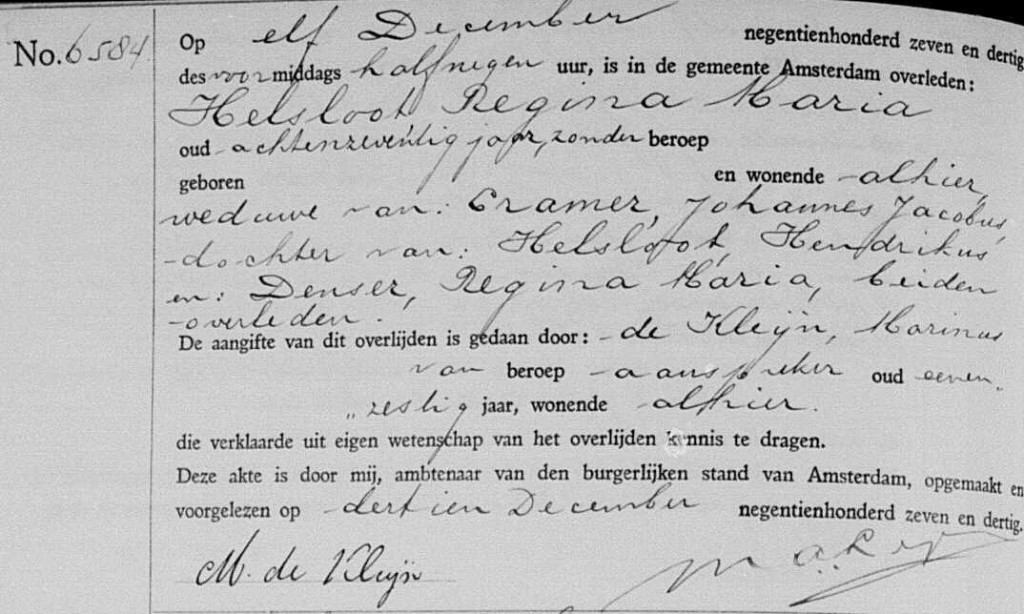 No. 6584
Op elf December negentienhonderd zeven en dertig
des voormiddags halfnegen uur, is in de gemeente Amsterdam overleden:
Helsloot Regina Maria
oud achtenzeventig jaar, zonder beroep
geboren en wonende alhier,
weduwe van: Cramer, Johannes Jacobus,
dochter van: Helsloot, Hendrikus
en: Denser, Regina Maria, beiden
overleden.
De aangifte van dit overlijden is gedaan door: de Kleijn, Marinus
van beroep aanspreker oud eenen
zestig jaar, wonende alhier.
die verklaarde uit eigen wetenschap van het overlijden kennis te dragen.
Deze akte is door mij, ambtenaar van den burgerlijken stand van Amsterdam, opgemaakt en
voorgelezen op dertien December negentienhonderd zeven en dertig.
M. de Kleijn